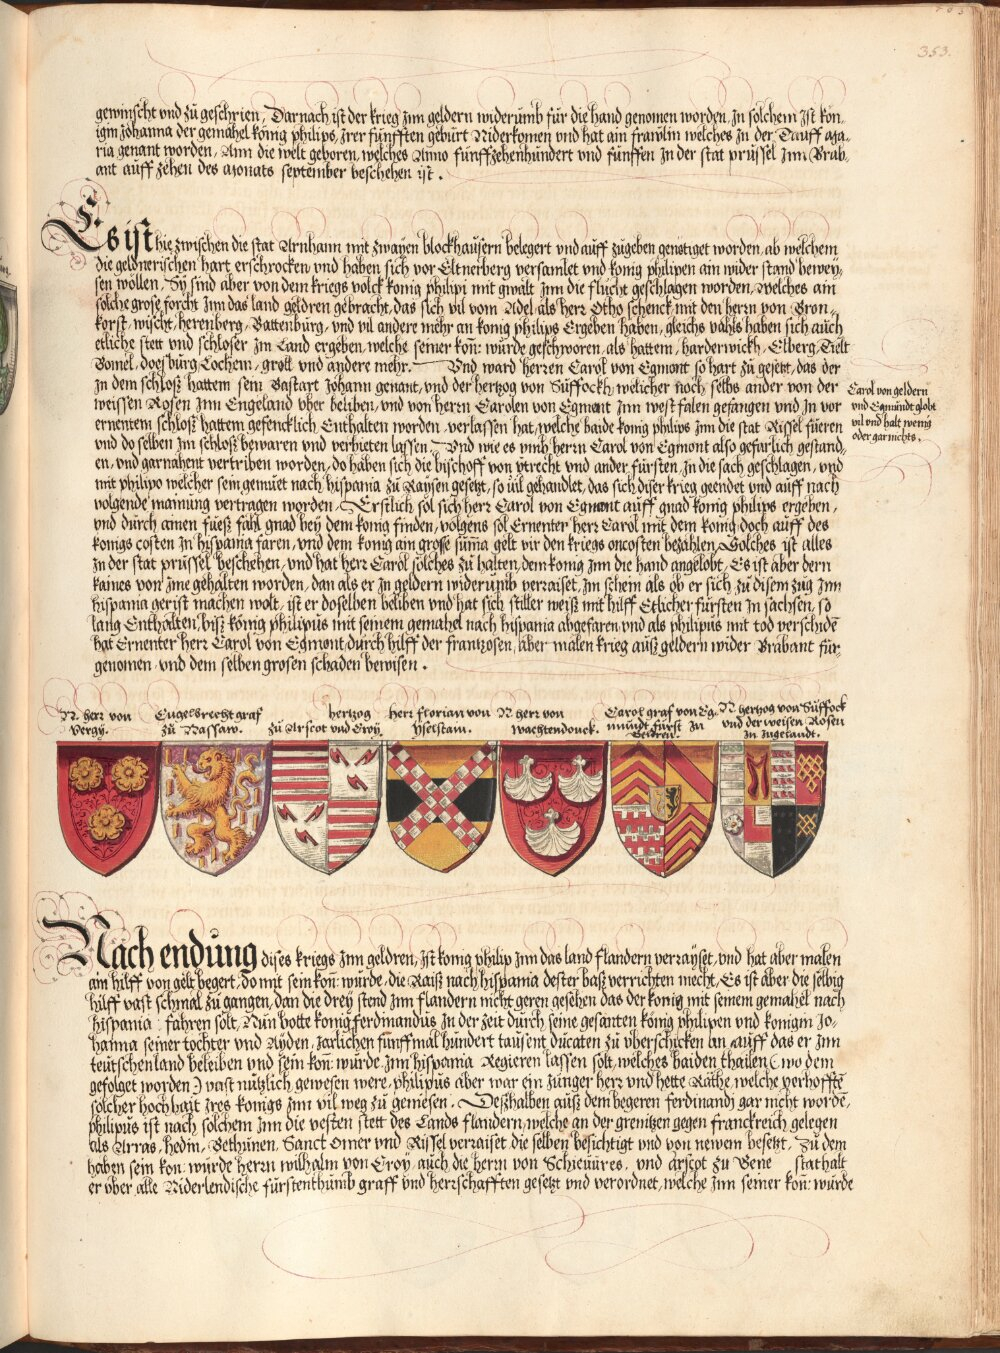 353.
gewinscht vnd zu geschrien, Darnach ist der krieg Inn geldern widerumb für die hand genomen worden, In solchem Ist kön-
igin Johanna der gemahel könig philips, Irer fünfften gebürt Niderkomen vnd hat ain fraülin welches In der Tauff Ma-
ria genant worden, Ann die welt geboren, welches Anno fünffzehenhundert vnd fünffen In der stat prüssel Inn Brab
ant auff zehen des Monats september beschehen ist.
Es ist hie zwischen die stat Arnhaim mit zwayen blockhausern belegert vnd auff zugeben genötiget worden, ab welchem
die geldnerischen hart erschrocken, vnd haben sich vor Eltnerberg versamlet vnd könig philipen ain wider stand bewey-
sen wöllen, Sy sind aber von dem kriegs volck könig philipi mit gwalt Inn die flucht geschlagen worden, welches ain
solche grose forcht Inn das land geldren gebracht, das sich vil vom Adel als herr Otho schenck mit den herrn von Bron-
korst, wischt, herenberg, Battenbürg, vnd vil andere mehr an könig philips Ergeben haben, gleichs vahls haben sich auch
etliche stett vnd schlösser Im Land ergeben, welche seiner kön: würde geschworen, als hattem, harderwickh, Elberg, Tielt
Bomel, doesbürg, Lochem, groll vnd andere mehr. Vnd ward herren Carol von Egmont so hart zu gesetzt, das der
In dem schloß hattem sein Bastart Johann genant, vnd der hertzog von Süffockh, welicher noch selbs ander von der
weissen Rosen Inn Engeland vber beliben, vnd von herrn Carolen von Egmont Inn west falen gefangen vnd In vor
ernentem schloß hattem gefencklich Enthalten worden, verlassen hat, welche baide könig philips Inn die stat Rissel füeren
vnd do selben Im schloß bewaren vnd verhieten lassen. Vnd wie es vmb herrn Carol von Egmont also gefarlich gestand-
en, vnd garnahent vertriben worden, do haben sich die bischoff von vtrecht vnd ander fürsten, In die sach geschlagen, vnd
mit philipo welcher sein gemüet nach hispania zu Raysen gesetzt, so vil gehandlet, das sich diser krieg geendet vnd auff nach
volgende mainung vertragen worden. Erstlich sol sich herr Carol von Egmont auff gnad könig philips ergeben,
vnd durch ainen fueß fahl gnad bey dem könig finden, volgens sol Ernenter herr Carol mit dem könig doch auff des
königs costen In hispania faren, vnd dem könig ain grosse suma gelt vir den kriegs oncosten bezahlen, Solches ist alles
In der stat prüssel beschehen, vnd hat herr Carol solches zu halten, dem könig Inn die hand angelobt, Es ist aber dern
kaines von Ime gehalten worden, dan als er In geldern widerumb verraiset, Im schein als ob er sich zu disem zug Inn
hispania gerist machen wolt, ist er doselben beliben vnd hat sich stiller weiß mit hilff Etlicher fürsten In sachsen, so
lang Enthalten, biß könig philipus mit seinem gemahel nach hispania abgefaren, vnd als philipus mit tod verschidē
hat Ernenter herr Carol von Egmont durch hilff der frantzosen, aber malen krieg auß geldern wider Brabant für-
genomen vnd dem selben grosen schaden bewisen.
Carol von geldern
vnd Egmundt globt
vil vnd halt wenig
oder gar nichts.
N. herr von
Vergy.
Engelbrecht graf
zu Nassaw.
hertzog
zu Arscot vnd Croy
herr florian von
yselstain.
N herr von
wachtendonck.
Carol graf von Eg-
mundt fürst zu
Geldren.
N hertzog von Süffock
vnd der weisen Rosen
In Ingelandt.
Nach endung dises kriegs Inn geldren, Ist könig philip Inn das land flandern verrayset, vnd hat aber malen
ain hilff von gelt begert, do mit sein kön: würde, die Raiß nach hispania dester baß verrichten mecht, Es ist aber die selbig
hilff vast schmal zu gangen, dan die drey stend Inn flandern nicht geren gesehen das der könig mit seinem gemahel nach
hispania fahren solt, Nun hotte könig ferdinandus In der zeit durch seine gesanten könig philipen vnd königin Jo-
hanna seiner tochter vnd Ayden, Järlichen fünffmal hundert tausent ducaten zu vberschicken lan, Auff das er Inn
teutschenland beleiben vnd sein kön: würde Inn hispania Regieren lassen solt, welches baiden thailen (wo dem
gefolget worden) vast nützlich gewesen were, philipus aber war ein Junger herr vnd hette Räthe, welche verhofftē
solcher hochhait Ires königs Inn vil weg zu geniesen. Deßhalben auß dem begeren ferdinandj gar nicht wordē,
philipus ist nach solchem Inn die vesten stett des Lands flandern, welche an der grenitzen gegen franckreich gelegen
als Arras, hedin, Bethünen, Sanct Omer vnd Ryssel verraiset die selben besichtigt vnd von newem besetzt, Zu dem
haben sein kön: würde herrn wilhalm von Croy, auch die herrn von Schieuures, vnd arscot zu Gene stathalt
er vber alle Niderlendische fürstenthumb graff vnd herrschafften gesetzt vnd verordnet, welche Inn seiner kön: würde